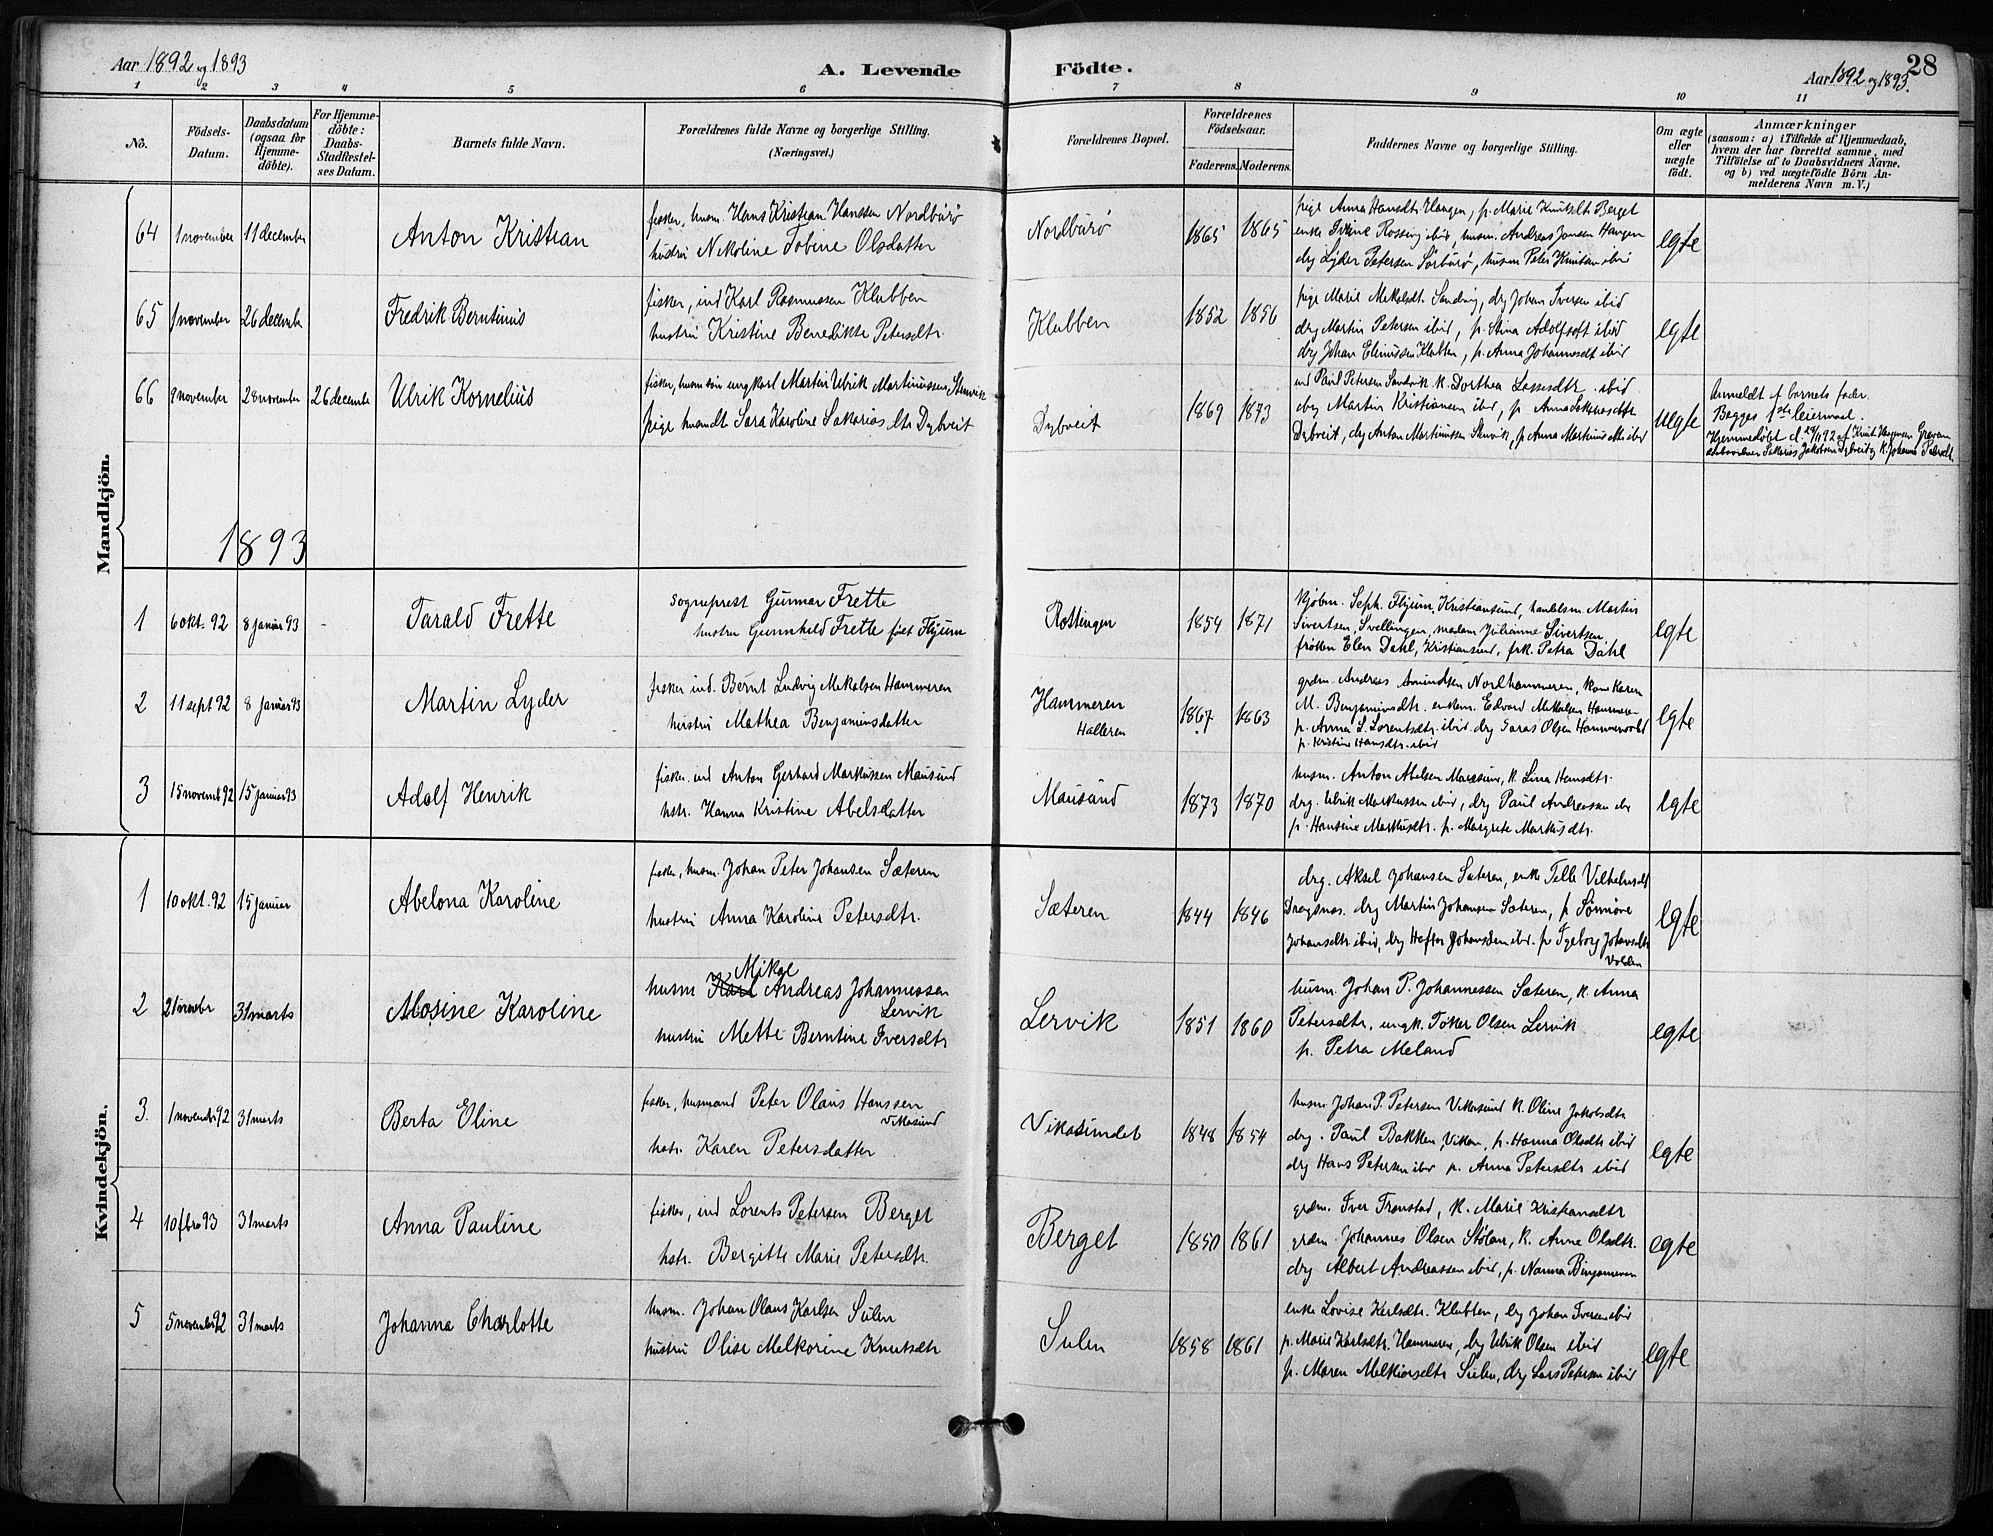 Aar 1892 og 1893
A. Levende Födte.
Aar 1892 og 1893.
28
1 2 3 4 5 6 7 8 9 10 11
No.
Födsels-
Datum.
Daabsdatum
(ogsaa for
Hjemme-
döbte).
For Hjemme-
döbte:
Daabs-
Stadfæstel-
ses Datum.
Barnets fulde Navn.
Forældrenes fulde Navne og borgerlige Stilling.
(Næringsvei.)
Forældrenes Bopæl.
Forældrenes
Födselsaar.
Faderens. Moderens.
Faddernes Navne og borgerlige Stilling.
Om ægte
eller
uægte
födt.
Anmærkninger
(saasom: a) i Tilfælde af Hjemmedaab,
hvem der har forrettet samme, med
Tilföielse af to Daabsvidners Navne.
og b) ved uægtefödte Börn An-
melderens Navn m. V.)
Mandkjön.
64 1 november 11 december Anton Kristian
fisker, husm. Hans Kristian Hanssen Nordburö
hustru Nikoline Tobine Olsdatter
Nordburö 1865 1865
pige Anna Hansdtr. Haugen, p. Marie Knutsdtr Berget
enke Rossing ibid, husm. Andreas Jonsen Haugen
drg Lyder Petersen Sörburö, husm Peter Knutsen ibid
egte
65 1 november 26 december Fredrik Berntinus
fisker, ind Karl Rasmussen Klubben
hustru Kristine Benedikte Petersdtr.
Klubben 1852 1856
pige Marie Mikalsdt. Sandvig, drg Johan Iversen ibid
drg Martin Petersen ibid, p. Stina Adolfsdt ibid
drg Johan Klubben, p. Anna Johannesdt ibid
egte
66 9 november 28 november 26 december Ulrik Kornelius
fisker, husm. sön ungkarl Martin Ulrik Martinussen Stenvik
pige husmdt Sara Karoline Sakarias dtr Dybveit
Dybveit 1869 1873
ind Paul Petersen Sandvik k. Dorthea Lassesdtr. ibid
drg Martin Kristiansen ibid, p Anna Sakariasdtr
Dybveit, drg Anton Martinussen Stenvik, p Anna Martinusdtr ibid
uegte
Anmeldt af barnets fader.
Begges 1ste leiermaal.
Hjemmedöbt d. 28/11 92 af Knut
Sakarias Jakobsen Dybveit og K. Johanna Petersdt.
1893
1 6 okt. 92 8 januar 93 - Tarald Frette
sogneprest Gunnar Frette
hustru Gunnhild Frette föet Flyum
Rottingen 1854 1871
kjöbm. Seph. Flyum, Kristiansund, handelsm. Martin
Sivertsen, Svellingen, madam Julianne Sivertsen
fröken Elen Dahl, Kristiansund, frk. Petra Dahl
egte
2 11 sept 92 8 januar 93 Martin Lyder
fisker ind. Bernt Ludvig Mikalsen Hammeren
hustru Mathea Benjaminsdatter
Hammeren
Halleren
1867 1863
grdm. Andreas Amundsen Nordhammeren, kone Karen
M. Benjaminsdtr. enkem. Edvard Mikalsen Hammeren
p. Anna S. Lorentsdtr. ibid. drg Olsen
p. Kristine Hansdtr. ibid
egte
3 15 novemb 92 15 januar 93 Adolf Henrik
fisker. ind Anton Gerhard Markussen Mausund
hstr. Hanna Kristine Abelsdatter
Mausund 1873 1870
husm. Anton Abelsen Mausund, k. Lina Hansdtr.
drg. Ulrik Markussen ibid, drg Paul Andreassen ibid
p. Hansine Markusdtr. p. Margrete Markusdtr.
egte
Kvindekjön.
1 10 okt. 92 15 januar Abelona Karoline
fisker, husm. Johan Peter Johansen Sæteren
hustru Anna Karoline Petersdtr.
Sæteren 1844 1846
drg. Aksel Johansen Sæteren, enke Telle Vilhelmsdt
Dragsnes. drg Martin Johansen Sæteren, p
Johansdtr ibid, drg Johansen ibid. p Ingeborg Johansdtr
Volden
egte
2 21 novbr 31 marts Mosine Karoline
Mikal
husm Karl Andreas Johannessen
Lervik
hustru Mette Berntine Iversdtr
Lervik 1851 1860
husm. Johan P. Johannessen Sæteren, k. Anna
Petersdtr. ungk. Töker Olsen Lervik
p. Petra Meland
egte
3. 1 novembr 92 31 marts Berta Eline
fisker, husmand Peter Olaus Hanssen
Vikasund
hstr. Karen Petersdatter
Vikasundet 1848 1854
husm Johan P. Petersen Vikasund k. Oline Jakobsdtr
drg. Paul Bakken Viken, p. Hanna Olsdtr ibid
drg Hans Petersen ibid p. Anna Petersdtr ibid
egte
4 10 febr 93 31 marts Anna Pauline
fisker, ind Lorents Petersen Berget
hstr. Bergitte Marie Petersdtr.
Berget 1850 1861
grdm. Iver Tronstad, k. Marie Kristiansdtr
grdm. Johannes Olsen Stölan, k. Anne Olsdtr.
drg Albert Andreassen ibid, p. Nanna
egte
5 5 november 92 31 marts Johanna Charlotte
husm. Johan Olaus Karlsen Sulen
hustru Olise Melkorine Knutsdtr
Sulen 1858 1861
enke Lovise Karlsdtr. Klubben, drg Johan Iversen ibid
p. Marie Karlsdtr. Hammeren, drg Ulrik Olsen ibid
p. Maren Melkiorsdtr Sulen, drg Lars Petersen ibid
egte